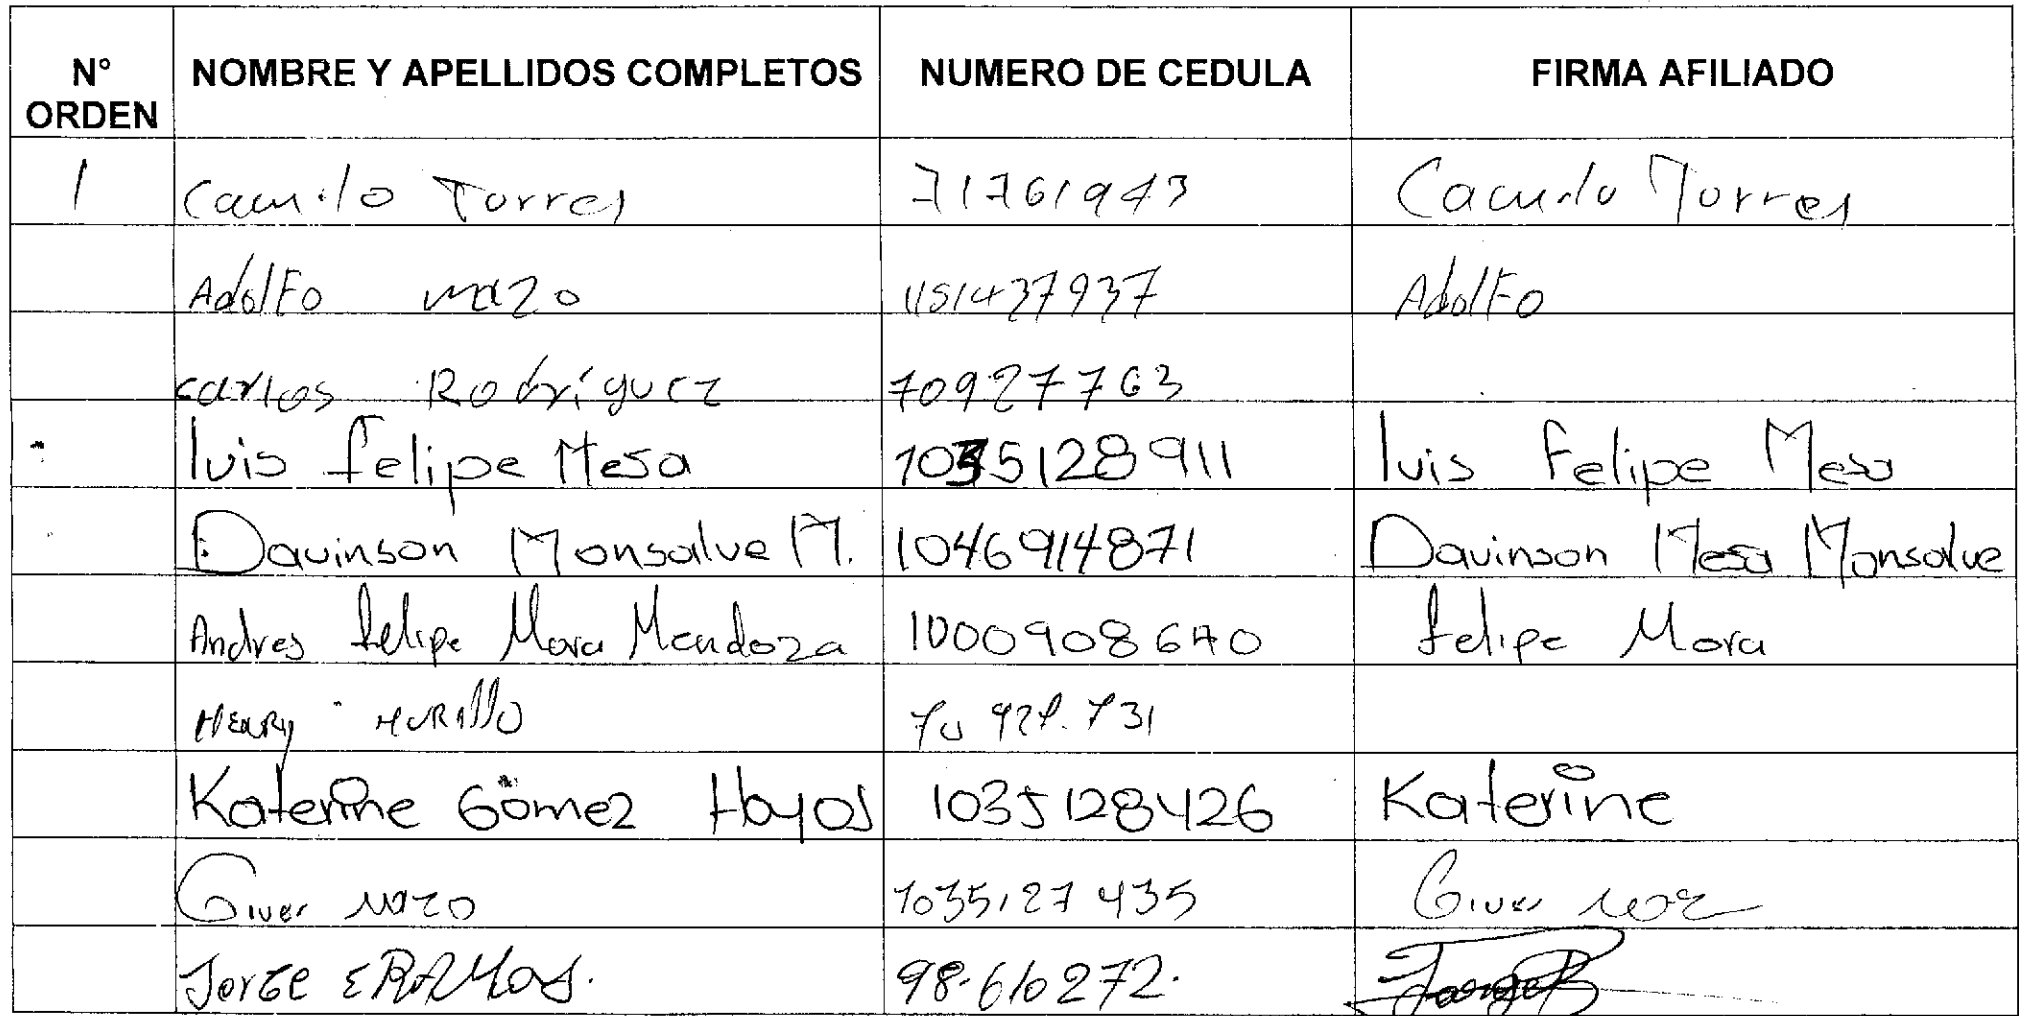 N° ORDEN NOMBRE Y APELLIDOS COMPLETOS NUMERO DE CEDULA FIRMA AFILIADO
1 Camilo Torres 71761943 Camilo Torres
Adolfo mazo 1151437937 Adolfo
carlos Rodríguez 70927763
luis felipe Mesa 1035128911 luis Felipe Mesa
Davinson Monsalve M. 1046914871 Davinson Mesa Monsalve
Andres felipe Mora Mendoza 1000908670 felipe Mora
Henry Murillo
Katerine Gómez Hoyos 1035128426 Katerine
Giver mazo 1035127435 Giver
Jorge E Ramos. 98.610272. Jorge